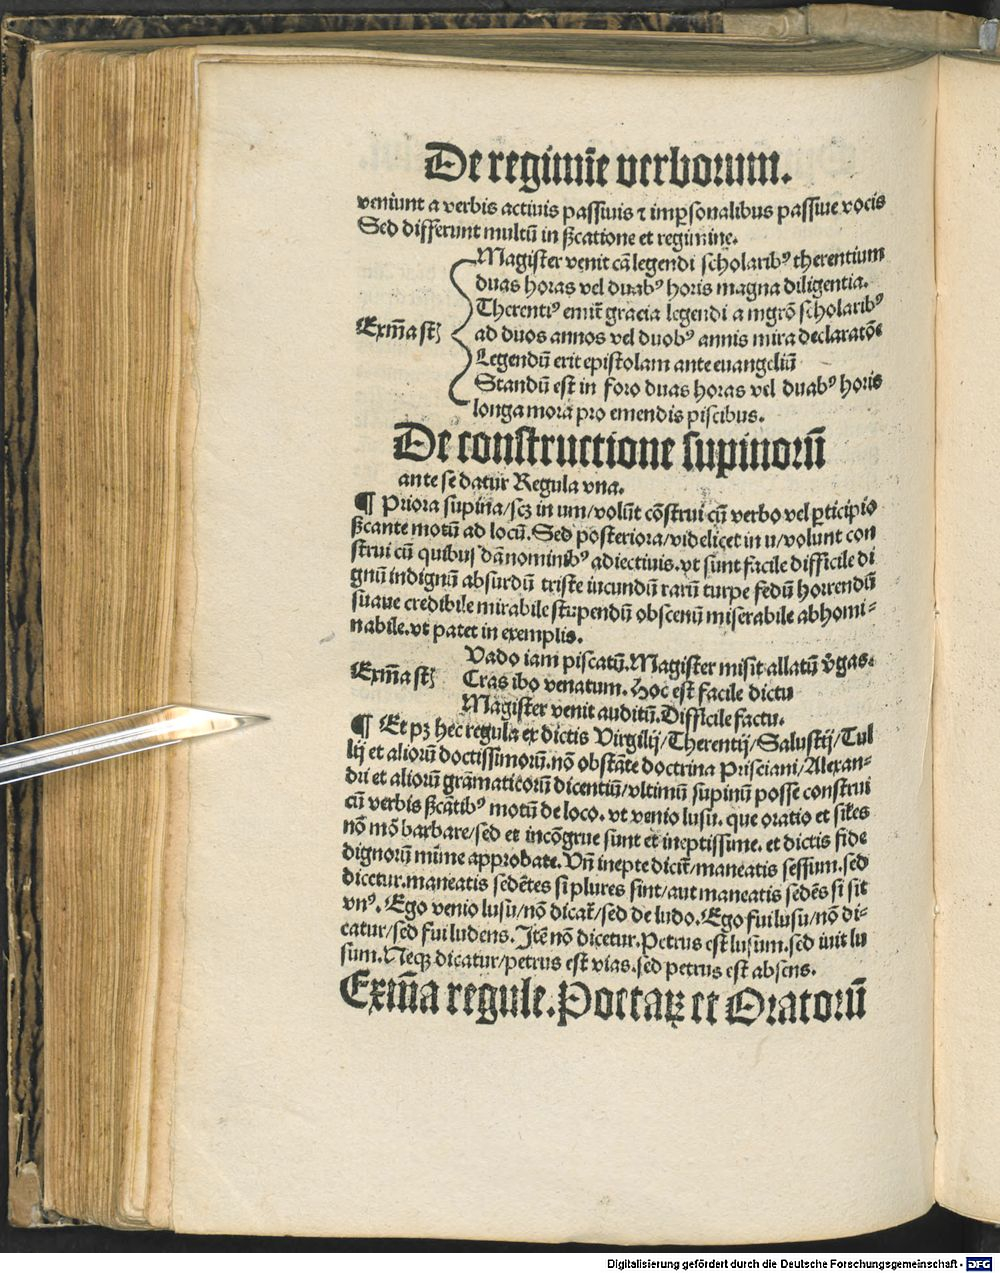 De regimīe verborum.
veniunt a verbis actiuis passiuis ⁊ imp̄sonalibus passiue vocis
Sed differunt multū in ß̄catione et regimine.
Magister venit cā legendi scholaribꝰ therentium
duas horas vel duabꝰ horis magna diligentia.
Therentiꝰ emit̄ gracia legendi a mgrō scholaribꝰ
Exm̄a st̄
ad duos annos vel duobꝰ annis mira declaratōe
Legendū erit epistolam ante euangeliū
Standū est in foro duas horas vel duabꝰ horis
longa mora pro emendis piscibus.
De constructione supinorū
ante se datur Regula vna.
¶ Priora supina/scꝫ in um/volūt cōstrui cū verbo vel ꝑticipio
ß̄cante motū ad locū. Sed posteriora/videlicet in u/volunt con
strui cū quibusdā nominibꝰ adiectiuis. vt sunt facile difficile di
gnū indignū absurdū triste iucundū rarū turpe fedū horrendū
suaue credibile mirabile stupendū obscenū miserabile abhomi⸗
nabile. vt patet in exemplis.
Vado iam piscatū. Magister misit allatū v̄gas.
Exm̄a st̄
Cras ibo venatum. Hoc est facile dictu
Magister venit auditū. Difficile factu.
¶ Et pꝫ hec regula ex dictis Virgilij/Therentij/Salustij/Tul
lij et aliorū doctissimorū. nō obstāte doctrina Prisciani/Alexan⸗
dri et aliorū grāmaticorū dicentiū/vltimū supinū posse construi
cū verbis ß̄cātibꝰ motū de loco. vt venio lusu. que oratio et sil̄es
nō mō barbare/sed et incōgrue sunt et ineptissime. et dictis fide
dignorū mīme approbate. Vn̄ inepte dicit̄/maneatis sessum. sed
dicetur. maneatis sedētes si plures sint/aut maneatis sedēs si sit
vnꝰ. Ego venio lusu/nō dicat̄/sed de ludo. Ego fui lusu/nō di⸗
catur/sed fui ludens. Itē nō dicetur. Petrus est lusum. sed iuit lu
sum. Neqꝫ dicatur/petrus est vias. sed petrus est absens.
Exm̄a regule. Poetaꝝ et Oratorū
Digitalisierung gefördert durch die Deutsche Forschungsgemeinschaft - DFG